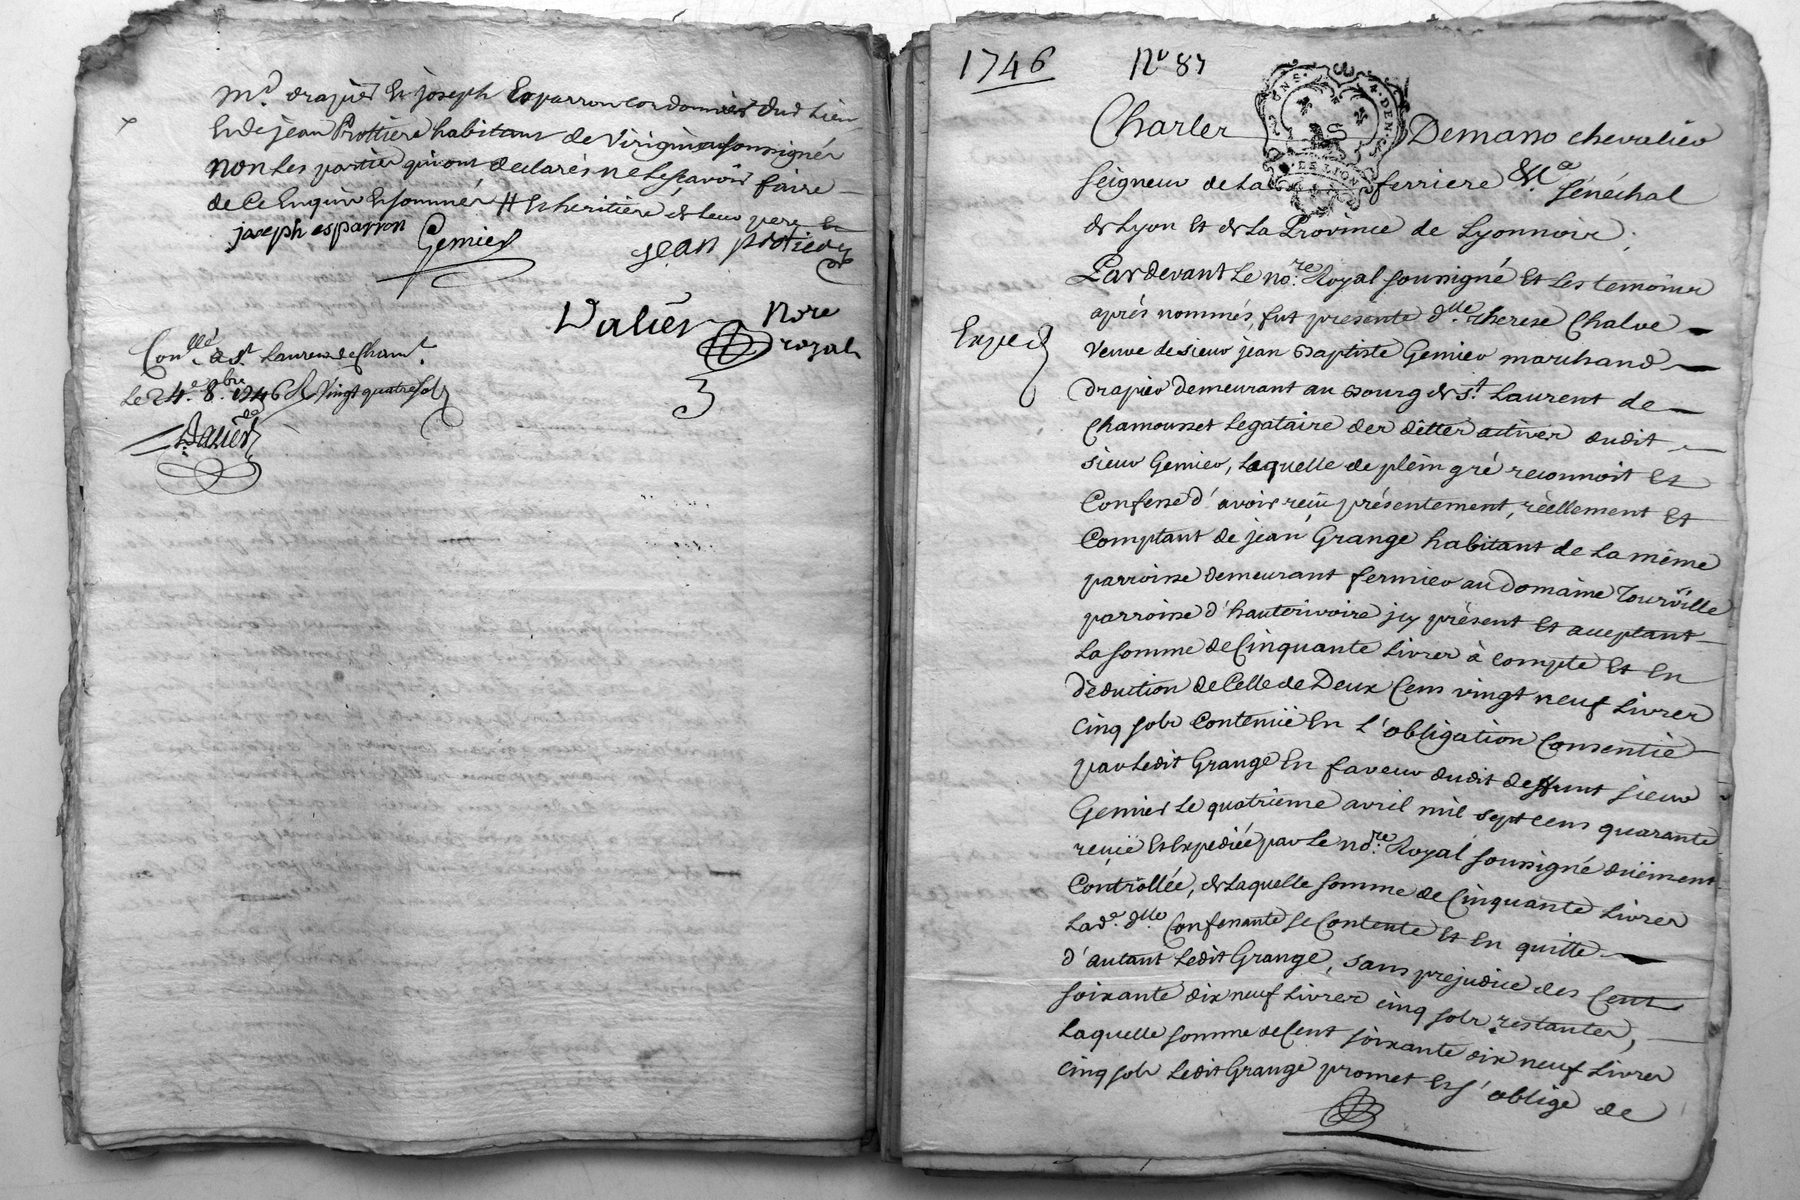 md. drapier et joseph Esparron cordonnier dud. Lieu
et de jean Prottiere habitant de Virigneu soussignés
non Les parties qui ont declarés ne le sçavoir faire
de ce Enquis et sommés # et heritiere de leur pere
joseph esparron Gemier jean protiere
Valier Nore
royal
3
Conllé à st. Laurens de Chamt.
Le 24e. 8bre. 1746 R Vingt quatre sols
Valier
1746 No 87
UNS 4 DEN
DE LION
Charles Demasso chevalier
seigneur de La ferriere &ca sénéchal
de Lyon et de La Province de Lyonnois,
Pardevant Le nore. Royal soussigné et Les temoins
après nommés, fut presente dlle. therese Chalve
Exped
veuve de sieur jean Baptiste Gemier marchand
drapier demeurant au Bourg de st. Laurent de
chamousset Legataire des dettes actives dudit
sieur Gemier, Laquelle de plein gré reconnoit et
Confesse d'avoir reçu présentement, réellement et
Comptant de jean Grange habitant de La même
parroisse demeurant fermier au Domaine Tourville
parroisse d'hauterivoire jcy présent et acceptant
La somme de Cinquante Livres à compte et en
déduction de Celle de Deux Cens vingt neuf Livres
cinq sols Contenüe En l'obligation Consentie
par Ledit Grange En faveur dudit deffunt sieur
Gemier Le quatrieme avril mil sept cens quarante
reçüe et Expediée par Le nore. Royal soussigné düement
Controllée, de Laquelle somme de Cinquante Livres
Lade. dlle. Confessante se Contente et en quitte
d'autant Ledit Grange, sans prejudice des Cent
soixante dix neuf Livres cinq sols restantes,
Laquelle somme de Cent soixante dix neuf Livres
cinq sols Ledit Grange promet et s'oblige de